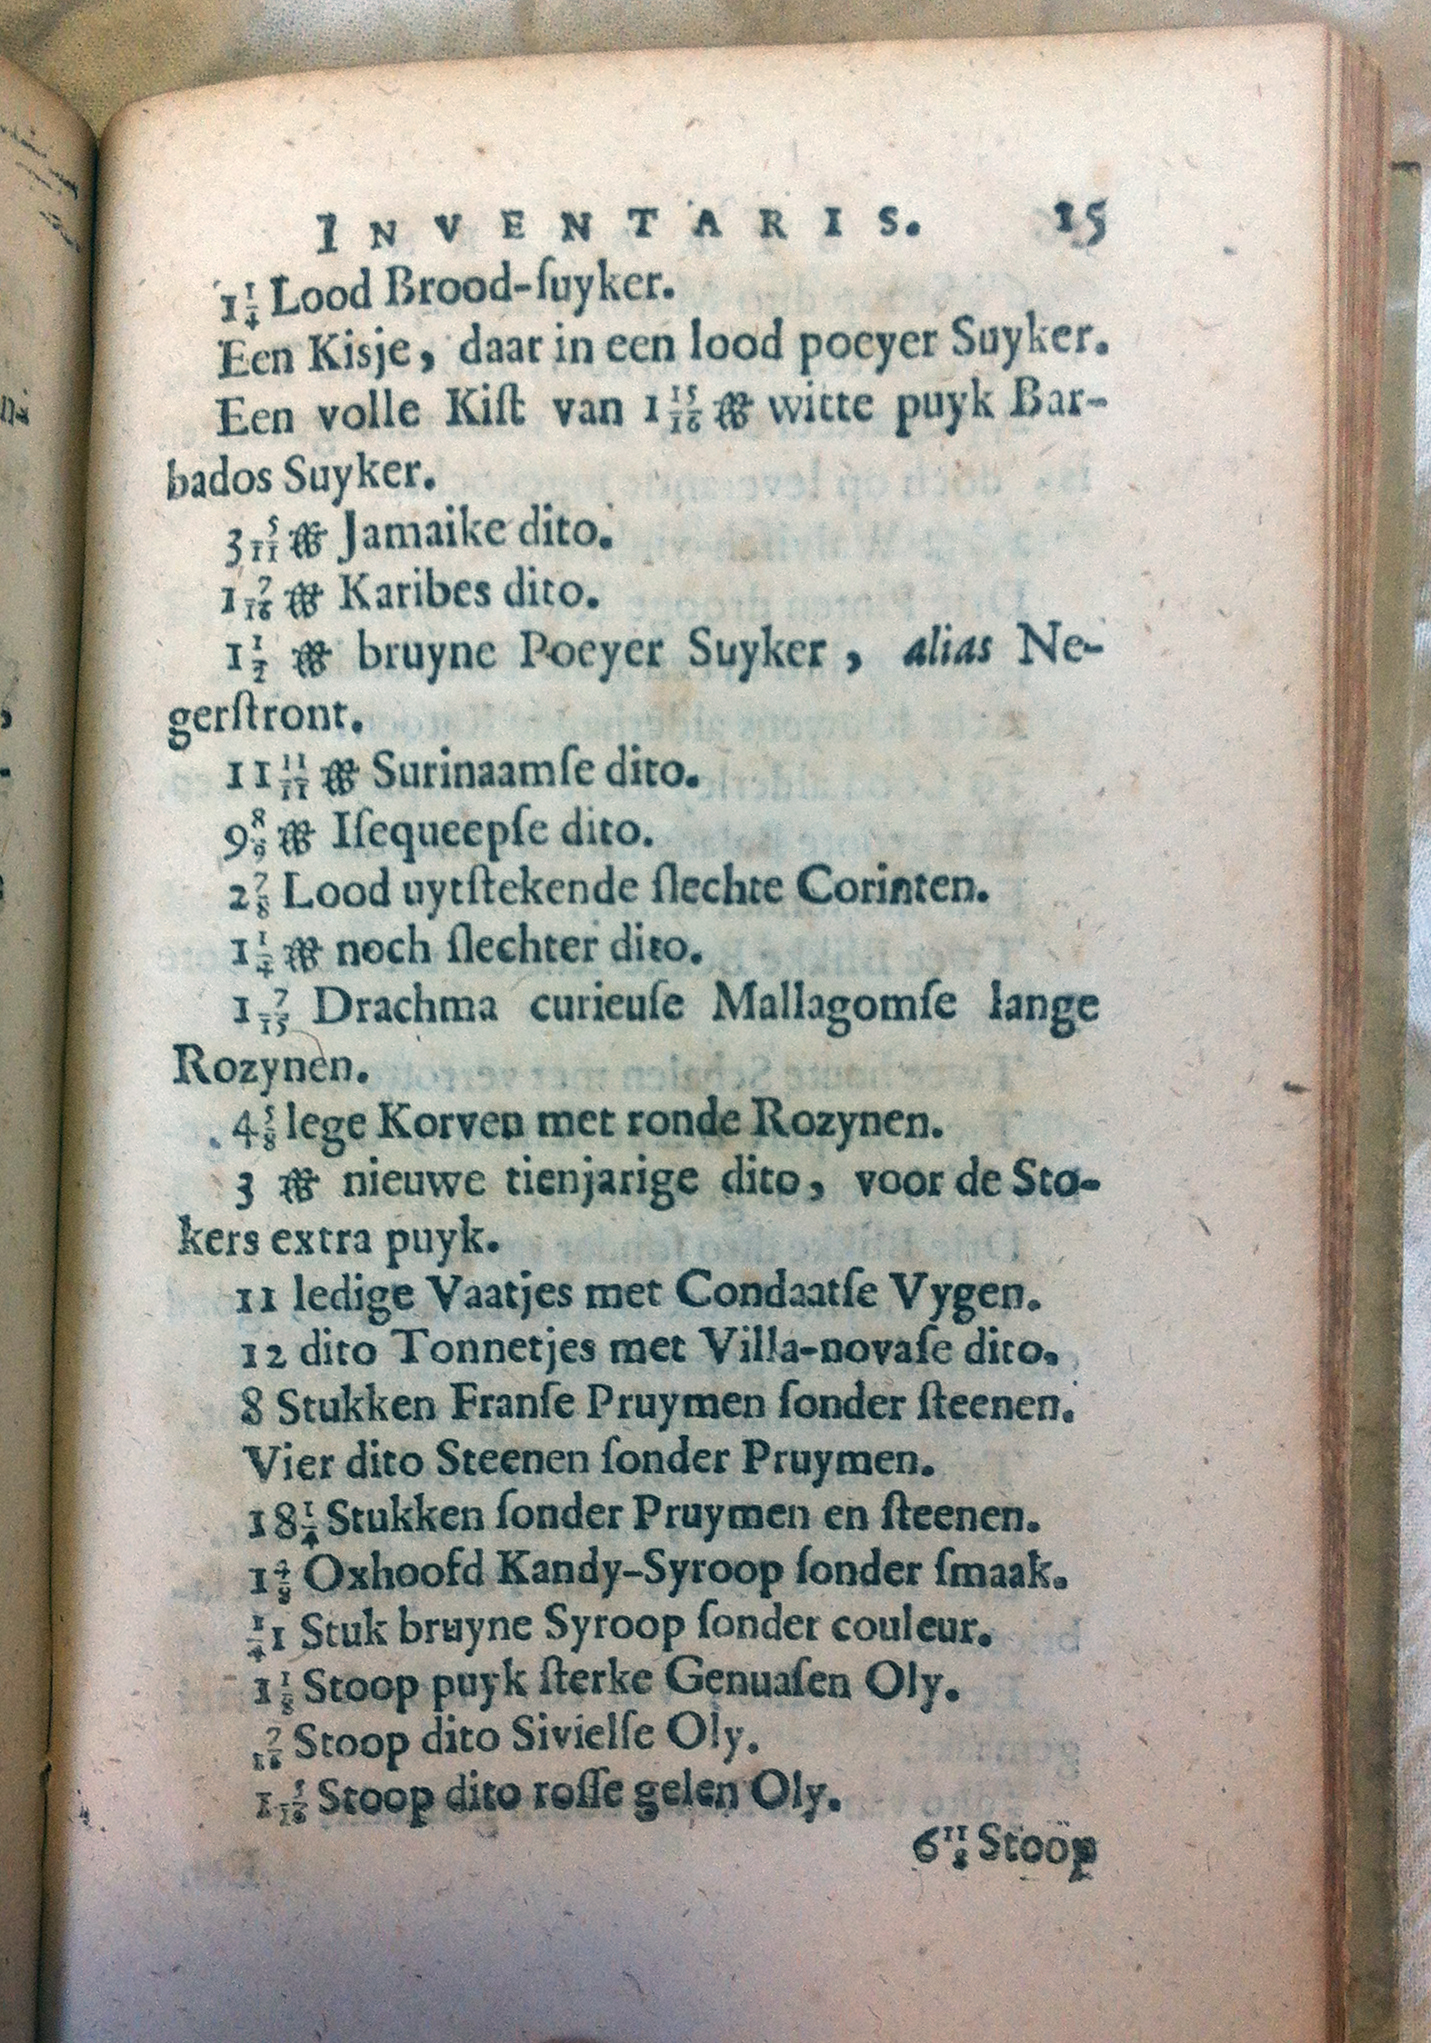 INVENTARIS. 15
1 1/4 Lood Brood-ſuyker.
Een Kisje, daar in een lood poeyer Suyker.
Een volle Kiſt van 1 15/16 ℔ witte puyk Bar-
bados Suyker.
3 5/11 ℔ Jamaike dito.
1 7/16 ℔ Karibes dito.
1 1/2 ℔ bruyne Poeyer Suyker, alias Ne-
gerſtront.
11 11/11 ℔ Surinaamſe dito.
9 8/9 ℔ Iſequeepſe dito.
2 7/8 Lood uytſtekende ſlechte Corinten.
1 1/4 ℔ noch ſlechter dito.
1 7/15 Drachma curieuſe Mallagomſe lange
Rozynen.
4 5/8 lege Korven met ronde Rozynen.
3 ℔ nieuwe tienjarige dito, voor de Sto-
kers extra puyk.
11 ledige Vaatjes met Condaatſe Vygen.
12 dito Tonnetjes met Villa-novaſe dito.
8 Stukken Franſe Pruymen ſonder ſteenen.
Vier dito Steenen ſonder Pruymen.
18 1/4 Stukken ſonder Pruymen en ſteenen.
Oxhoofd Kandy-Syroop ſonder ſmaak.
1/4 1 Stuk bruyne Syroop ſonder couleur.
1 1/8 Stoop puyk ſterke Genuaſen Oly.
7/16 Stoop dito Sivielſe Oly.
Stoop dito roſſe gelen Oly.
Stoop